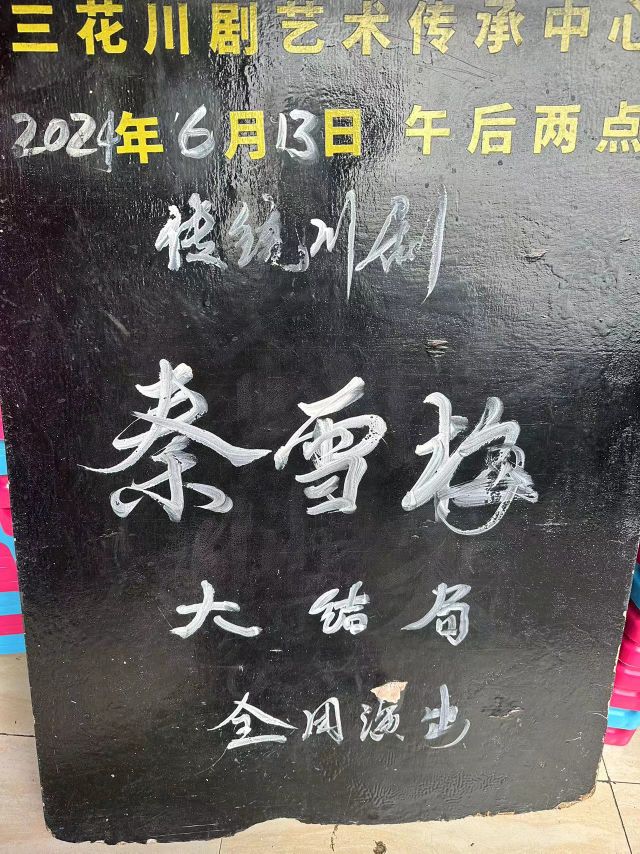 三花川剧艺术传承中心
2024年6月13日 午后两点
传统川剧
秦雪梅
大结局
全团演出